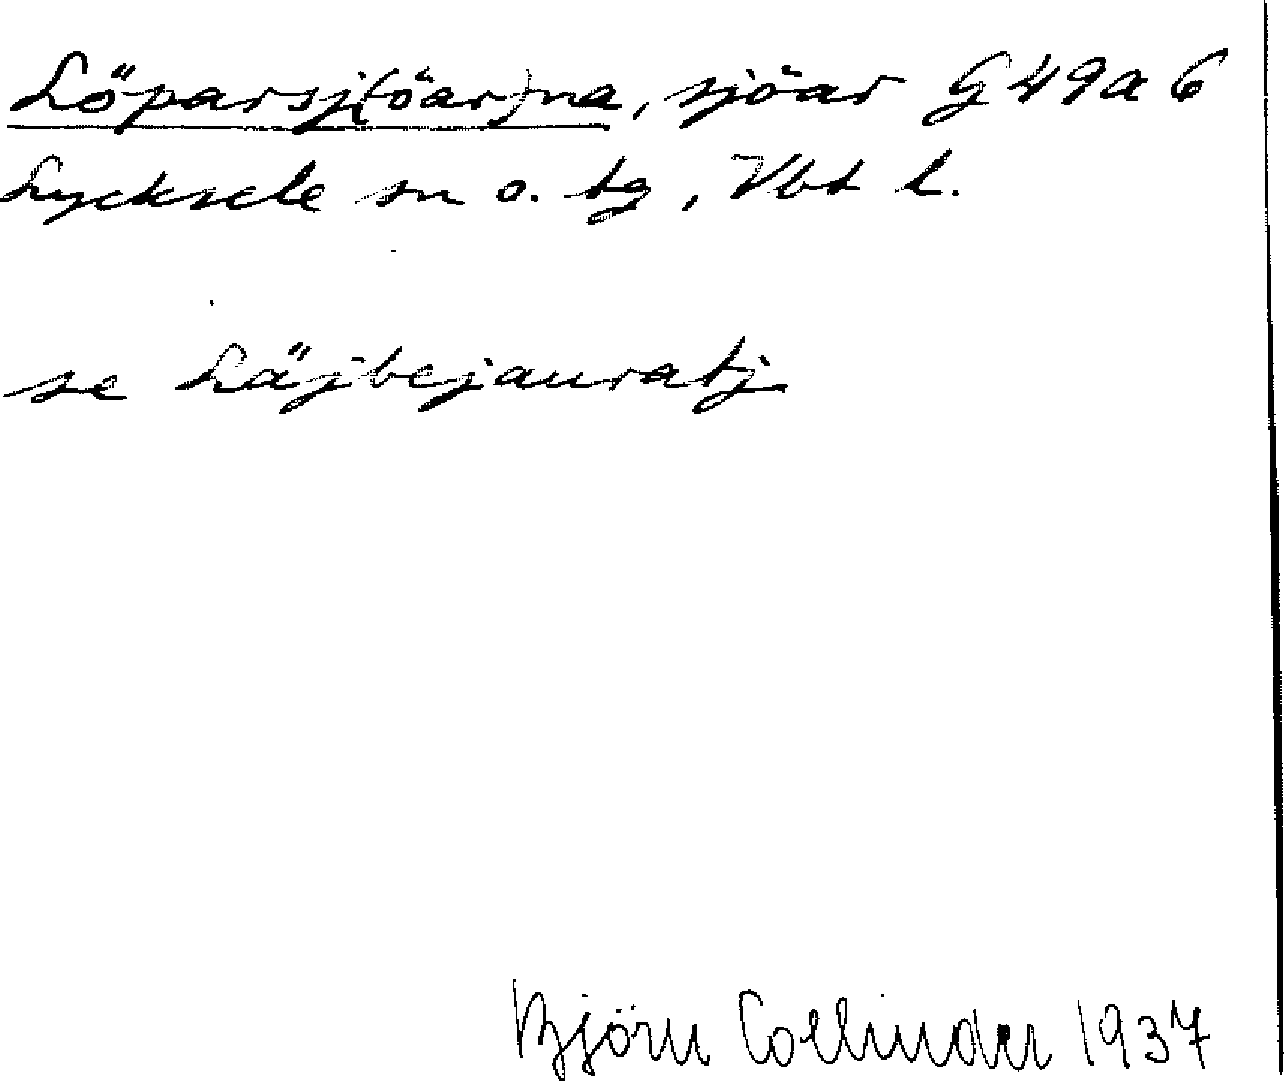 Löparsj(öar)na, sjöar G 49a 6
Lycksele sn o. tg, Vbt l.
se Läjbejauratj
Björn Collinder 1937